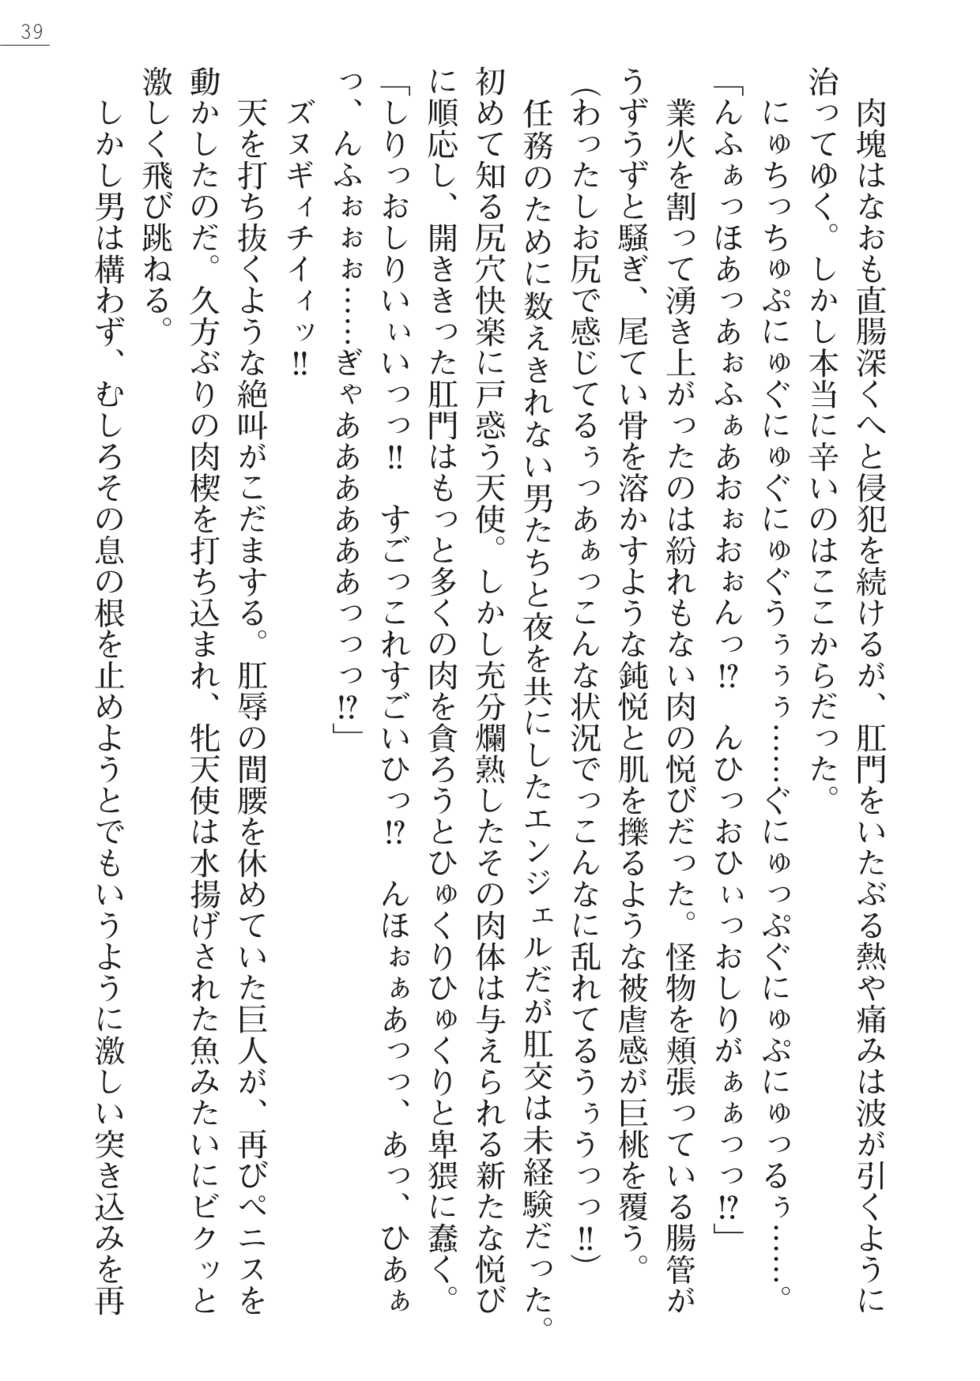 39
肉塊はなおも直腸深くへと侵犯を続けるが、肛門をいたぶる熱や痛みは波が引くように
治ってゆく。しかし本当に辛いのはここからだった。
にゅちっちゅぷにゅぐにゅぐにゅぐうぅぅぅ……ぐにゅっぷぐにゅぷにゅっるぅ……。
「んふぁっほあっあぉふぁあおぉおぉんっ!? んひっおひぃっおしりがぁぁっっ!?」
業火を割って湧き上がったのは紛れもない肉の悦びだった。怪物を頬張っている腸管が
うずうずと騒ぎ、尾てい骨を溶かすような鈍悦と肌を擽るような被虐感が巨桃を覆う。
(わったしお尻で感じてるぅっあぁっこんな状況でっこんなに乱れてるうぅうっっ!!)
任務のために数えきれない男たちと夜を共にしたエンジェルだが肛交は未経験だった。
初めて知る尻穴快楽に戸惑う天使。しかし充分爛熟したその肉体は与えられる新たな悦び
に順応し、開ききった肛門はもっと多くの肉を貪ろうとひゅくりひゅくりと卑猥に蠢く。
「しりっおしりいぃいっっ!! すごっこれすごいひっ!? んほぉぁあっっ、あっ、ひあぁ
っ、んふぉぉぉ……ぎゃああああああっっっ!?」
ズヌギィチイィッ!!
天を打ち抜くような絶叫がこだまする。肛辱の間腰を休めていた巨人が、再びペニスを
動かしたのだ。久方ぶりの肉楔を打ち込まれ、牝天使は水揚げされた魚みたいにビクッと
激しく飛び跳ねる。
しかし男は構わず、むしろその息の根を止めようとでもいうように激しい突き込みを再